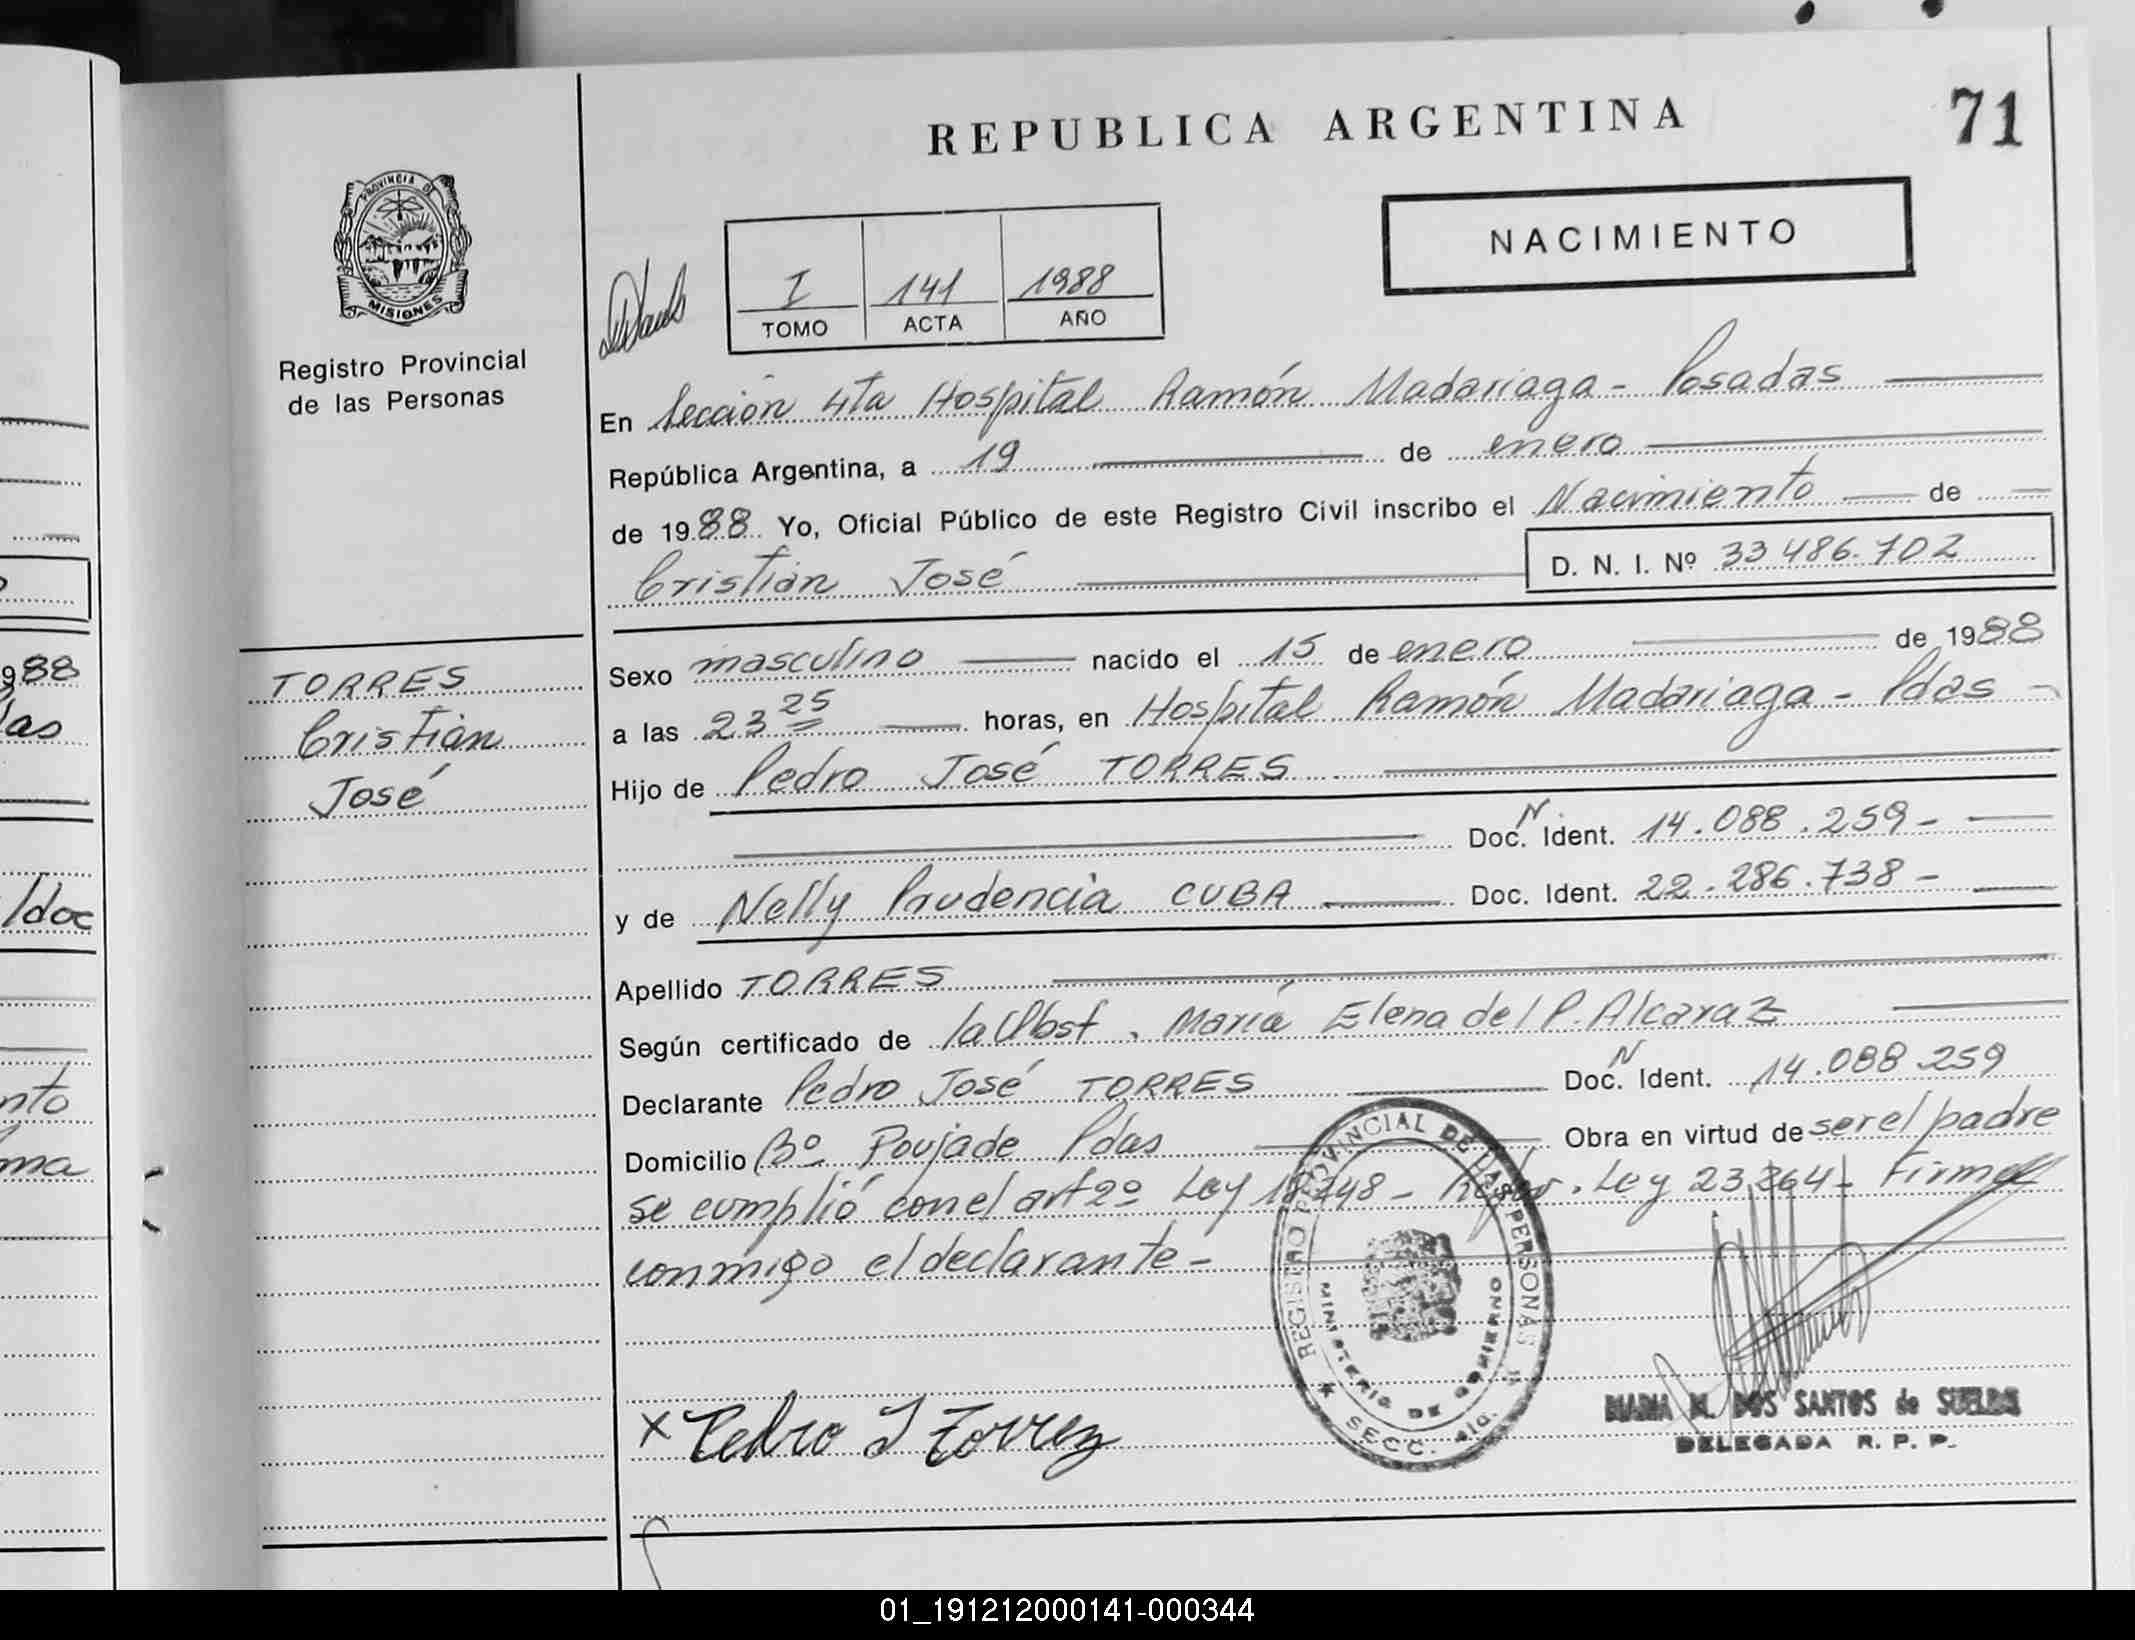 REPUBLICA ARGENTINA
71
PROVINCIA DE
MISIONES
Registro Provincial
de las Personas
NACIMIENTO
I 141 1988
TOMO ACTA AÑO
En Sección 4ta Hospital Ramón Madariaga - Posadas
República Argentina, a 19 de enero
de 1988 Yo, Oficial Público de este Registro Civil inscribo el Nacimiento de
Cristian José D. N. I. Nº 33 486.702
TORRES
Cristian
José
Sexo masculino nacido el 15 de enero de 1988
a las 23 25 horas, en Hospital Ramón Madariaga - Pdas -
Hijo de Pedro José TORRES
N
Doc. Ident. 14.088.259-
y de Nelly Prudencia CUBA Doc. Ident. 22.286.738-
Apellido TORRES
Según certificado de la Obst. María Elena del P. Alcaraz
N
Declarante Pedro José TORRES Doc. Ident. 14.088.259
Domicilio Bº Poujade Pdas Obra en virtud de ser el padre
se cumplió con el art 2º Ley 18248- Ley 23264- Firma
conmigo el declarante-
REGISTRO PROVINCIAL DE LAS PERSONAS
MINISTERIO DE GOBIERNO
SECC. 4ta.
x Pedro J Torrez
MARIA M. DOS SANTOS de SUELDO
DELEGADA R. P. P.
988
las
Pdoc
nto
ma
01_191212000141-000344